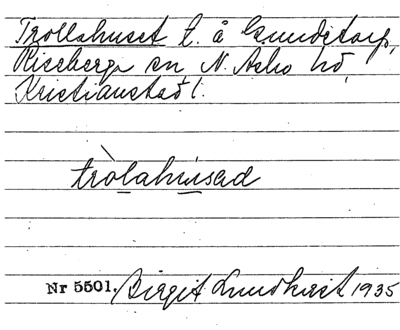 Trollahuset t. å Gundstorp,
Riseberga sn, N. Åsbo hd,
Kristianstad l.
tròlahùsad
Nr 5501. Birgit Lundkvist 1935